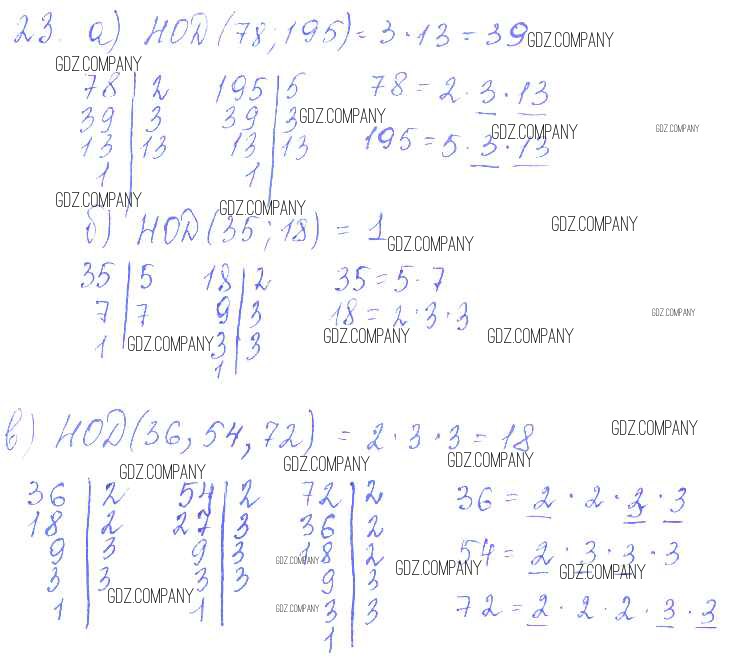 23. а) НОД(78; 195) = 3·13 = 39 GDZ.COMPANY
GDZ.COMPANY
78 | 2 195 | 5 78 = 2·3·13
39 | 3 39 | 3 GDZ.COMPANY GDZ.COMPANY GDZ.COMPANY
13 | 13 13 | 13 195 = 5·3·13
1 | 1 |
GDZ.COMPANY GDZ.COMPANY GDZ.COMPANY
б) НОД(35; 18) = 1 GDZ.COMPANY
35 | 5 18 | 2 35 = 5·7
7 | 7 9 | 3 18 = 2·3·3 GDZ.COMPANY
1 | GDZ.COMPANY 3 | 3 GDZ.COMPANY GDZ.COMPANY
1 |
в) НОД(36, 54, 72) = 2·3·3 = 18 GDZ.COMPANY
GDZ.COMPANY GDZ.COMPANY GDZ.COMPANY
36 | 2 54 | 2 72 | 2 36 = 2·2·3·3
18 | 2 27 | 3 36 | 2
9 | 3 9 | 3 GDZ.COMPANY 18 | 2 54 = 2·3·3·3
3 | 3 3 | 3 9 | 3 GDZ.COMPANY GDZ.COMPANY
1 | GDZ.COMPANY 1 | GDZ.COMPANY 3 | 3 72 = 2·2·2·3·3
1 |